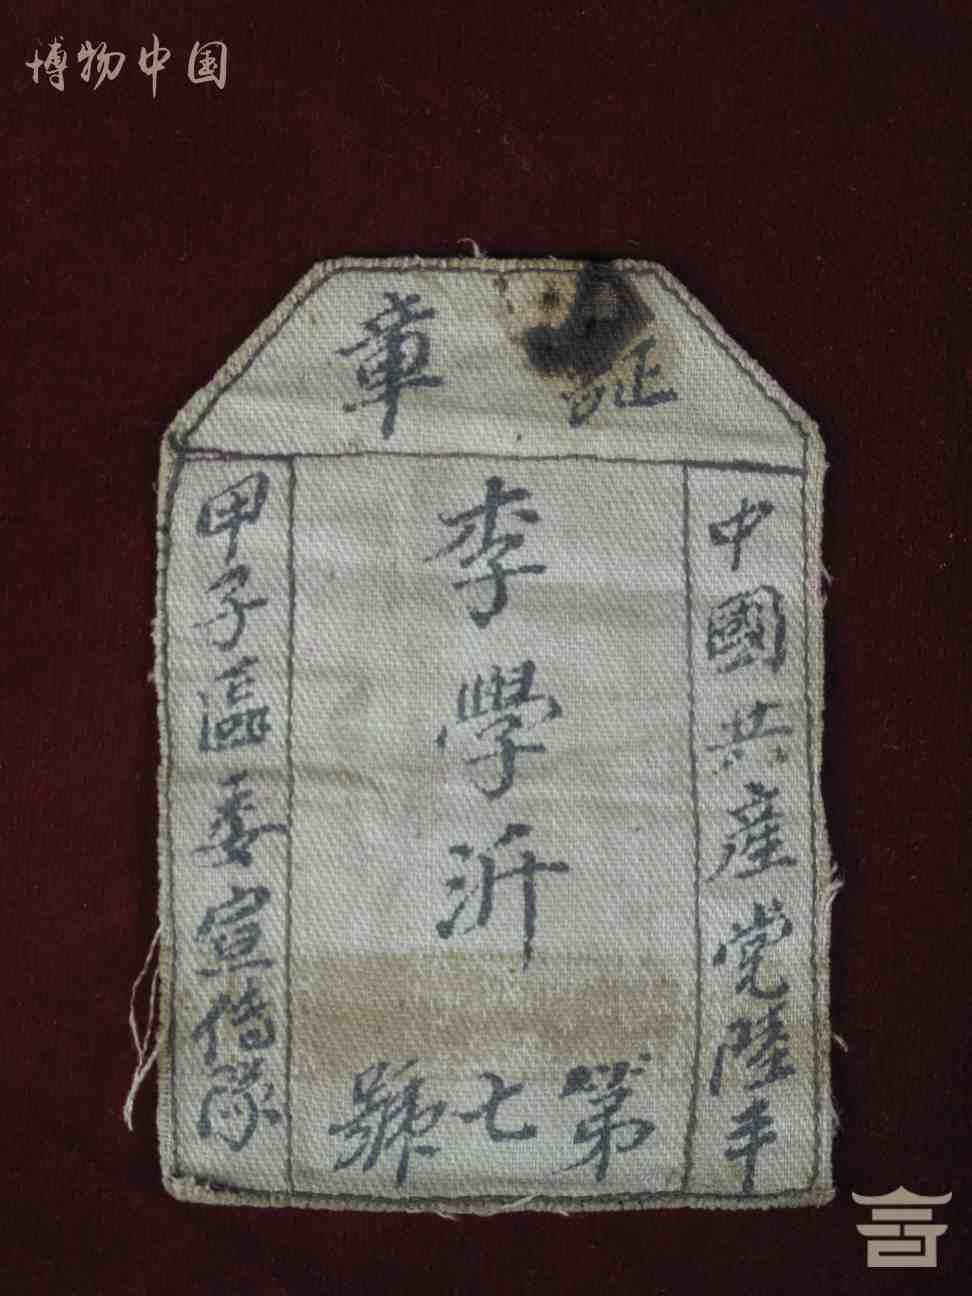 博物中国
証章
中國共產党陸丰
李學沂
第七號
甲子區委宣傳隊